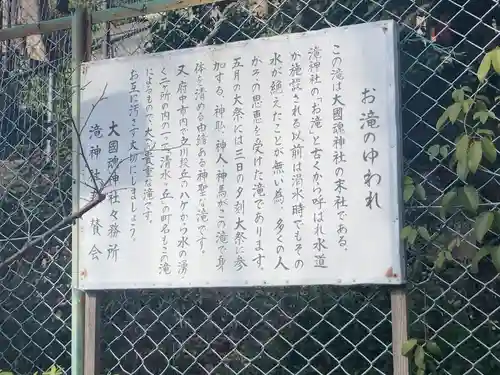 お滝のゆわれ
この滝は大國魂神社の末社である、
滝神社の"お滝"と古くから呼ばれ水道
が施設される以前は渇水時でもその
水が絶えたことが無い為、多くの人
がその恩恵を受けた滝であります。
五月の大祭には三日の夕刻大祭に参
加する、神馬、神人、神馬がこの滝で身
体を清める由緒ある神聖な滝です。
又、府中市内で立川段丘のハケから水の湧
く三ケ所の内の一つで清水ヶ丘の町名もこの滝
によるもので大へん貴重な滝です。
お互に汚さず大切にしましょう。
大國魂神社々務所
滝神社 賛会